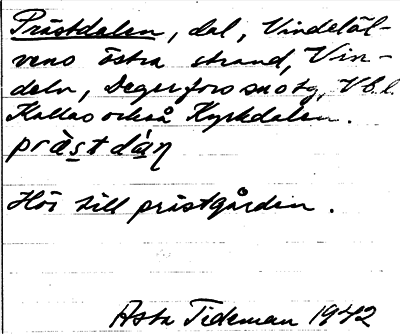 Prästdalen, dal, Vindeläl-
vens östra strand, Vin-
deln, Degerfors sn otg, Vb.l.
Kallas också Kyrkdalen.
prästdàn
Hör till prästgården.
Asta Tideman 1942